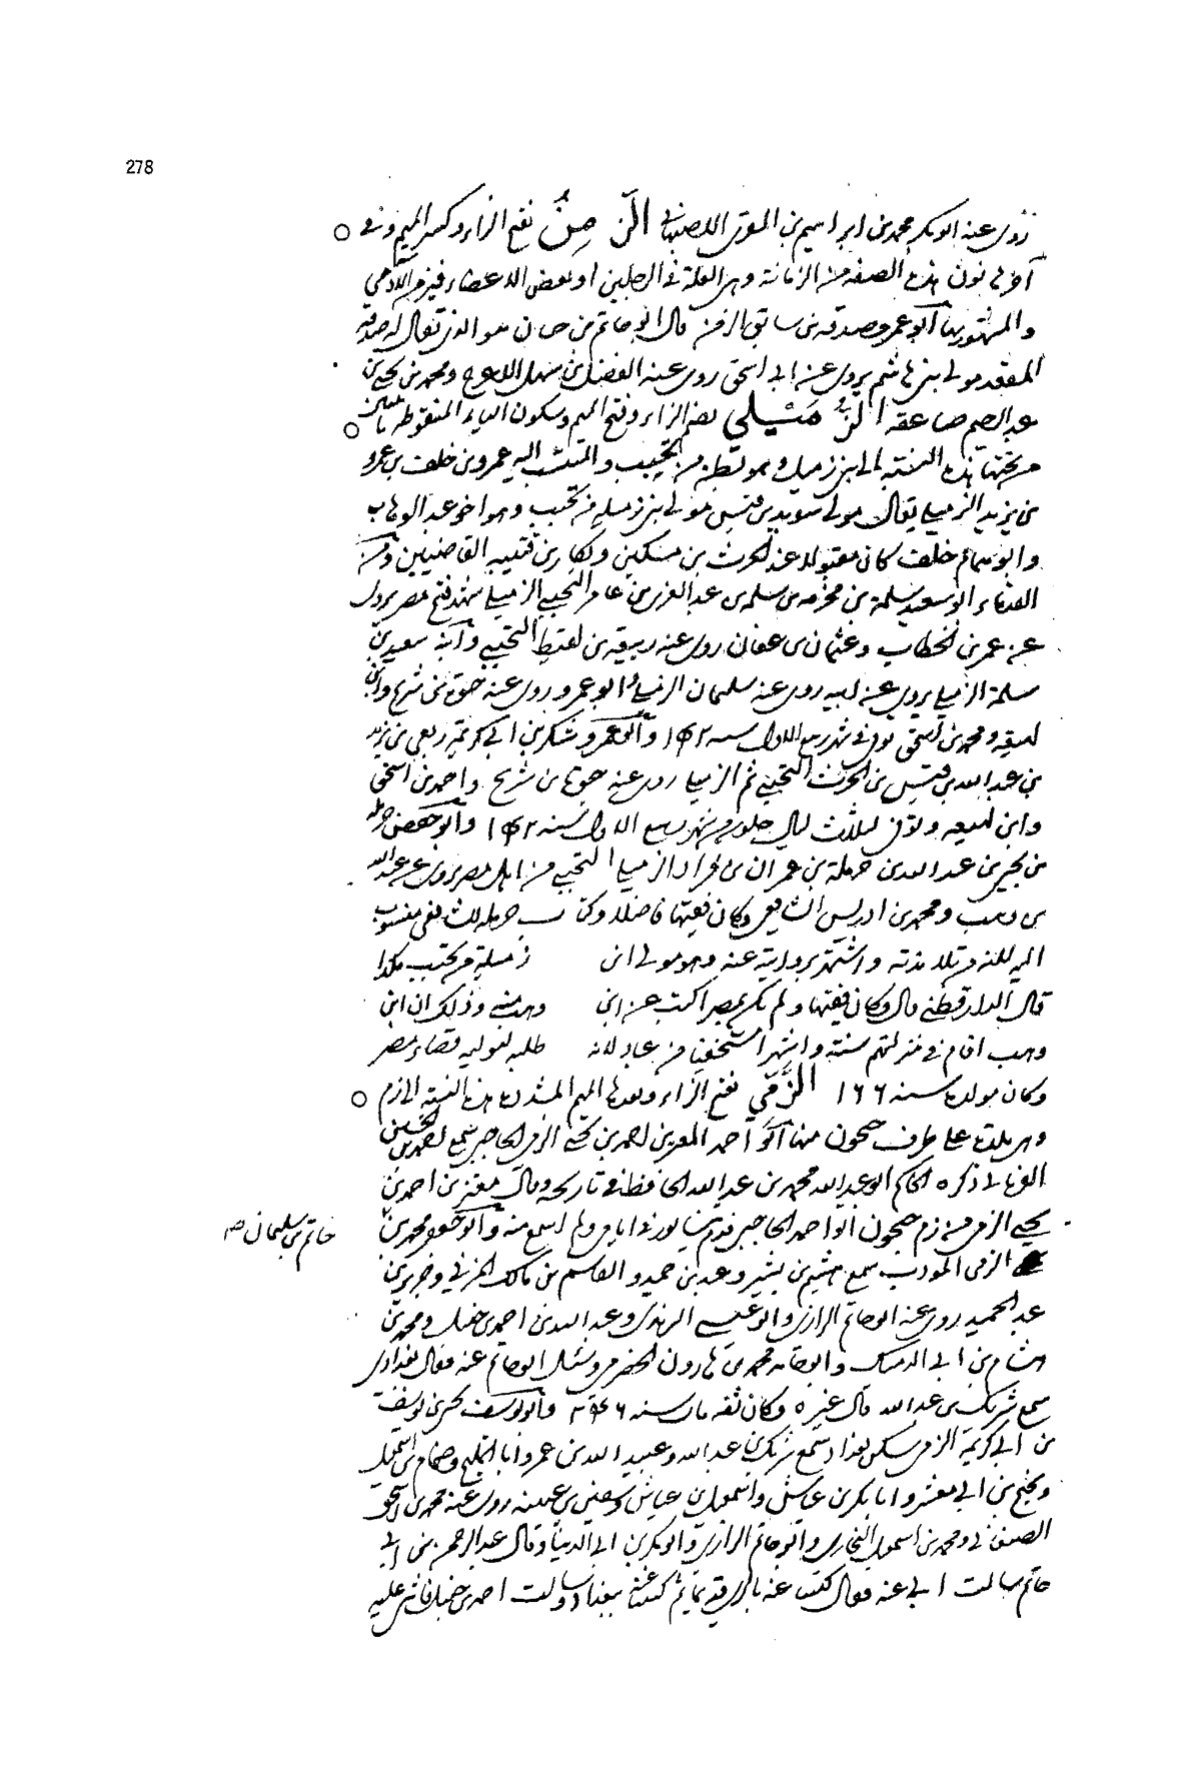 278
روى عنه ابو بكر محمد بن ابراهيم بن المقرى الاصبهانى الزَّمِنُ بفتح الزاء وكسر الميم وفى
آخره نون هذه الصفة من الزمانة وهى العلة فى الرجلين او بعض الاعضاء فيزمن الآدمى
والمشهور بها ابو عمر وصدقة بن سابق الزمن قال ابو حاتم بن حبان هو الذى يقال له صدقة
المقعد مولى بنى هاشم يروى عن ابى اسحق روى عنه الفضل بن سهل الاعرج ومحمد بن
عبد الرحيم صاعقة الزُّمَيْلى بضم الزاء وفتح الميم وسكون الياء المنقوطة باثنتين
من تحتها هذه النسبة الى بنى زميلة وهو بطن من تجيب والمنتسب اليه عمرو بن خلف بن عمرو
بن يزيد الزميلى يقال مولى سويد بن قيس مولى بنى زميلة من تجيب وهو اخو عبد الوهاب
وابو سمام خلف كان مقبولا عند الحرث بن مسكين وبكار بن قتيبة القاضيين ومن
القدماء ابو سعيد سلمة بن مخرمة بن سلمة بن عبد العزى بن عامر التجيبى الزميلى شهد فتح مصر يروى
عن عمر بن الخطاب وعثمان بن عفان روى عنه ربيعة بن لقيط التجيبى وابنه سعيد بن
سلمة الزميلى يروى عن ابيه روى عنه سليمان الزميلى ابو عمرو روى عنه حيوة بن شريح وابن
لهيعة ومحمد بن اسحق توفى فى شهر ربيع الاول سنة وابو عمرو شكر بن ابى كريمة ربعى بن يزيد
بن عبد الله بن قيس بن الحرث التجيبى ثم الزميلى روى عنه حيوة بن شريح واحمد بن اسحق
وابن لهيعة وتوفى لثلاث ليال خلون من شهر ربيع الاول سنة وابو حفص حرملة
بن يحيى بن عبد الله بن حرملة بن عمران بن قراد الزميلى التجيبى من اهل مصر يروى عن عبد الله
بن وهب ومحمد بن ادريس الشافعى وكان فقيها فاضلا وكتاب حرملة للشافعى منسوب
اليه لانه من تلامذته واشتهر بروايته عنه وهو مولى ابن زميلة من تجيب هكذا
قال الدارقطنى قال وكان فقيها ولم يكن بمصر اكتب عن ابن وهب منه وذلك ان ابن
وهب اقام فى منزلهم سنة واشهرا مستخفيا من عباد لانه طلبه ليوليه قضاء مصر
وكان مولده سنة ١٦٦ الزَّمّى بفتح الزاء وبعدها الميم المشددة هذه النسبة الى زم
وهى بلدة على طرف جيحون منها ابو احمد بن يحيى الزمى الحاجبى سمع
ذكره الحاكم ابو عبد الله محمد بن عبد الله الحافظ فى تاريخه وقال بن احمد بن
يحيى الزمى من زم جيحون ابو احمد الحاجبى قدم نيسابور ولم اسمع منه وابو جعفر محمد بن
حاتم بن سليمان صح
الزمى المؤدب سمع هشيم بن بشير وعبيدة بن حميد والقاسم بن مالك المزنى وجرير بن
عبد الحميد روى عنه ابو حاتم الرازى وابو عيسى الترمذى وعبد الله بن احمد بن حنبل ومحمد بن
هشام بن ابى الدميك وابو حامد محمد بن هارون الحضرمى وسئل ابو حاتم عنه فقال بغدادى
سمع شريك بن عبد الله قال غيره وكان ثقة مات سنة ٢٤٦ وابو يوسف يحيى بن يوسف
بن ابى كريمة الزمى سكن بغداد سمع شريك بن عبد الله وعبيد الله بن عمرو وابا المليح وضمام بن اسمعيل
ونجيح بن ابى معشر وابا بكر بن عياش واسمعيل بن عياش وسفين بن عيينة روى عنه محمد بن اسحق
الصغانى ومحمد بن اسمعيل البخارى وابو حاتم الرازى وابو بكر بن ابى الدنيا وقال عبد الرحمن بن ابى
حاتم سالت ابى عنه فقال كتبت عنه بالرى قديما ثم كتبت عنه ببغداد وسالت احمد بن حنبل فاثنى عليه